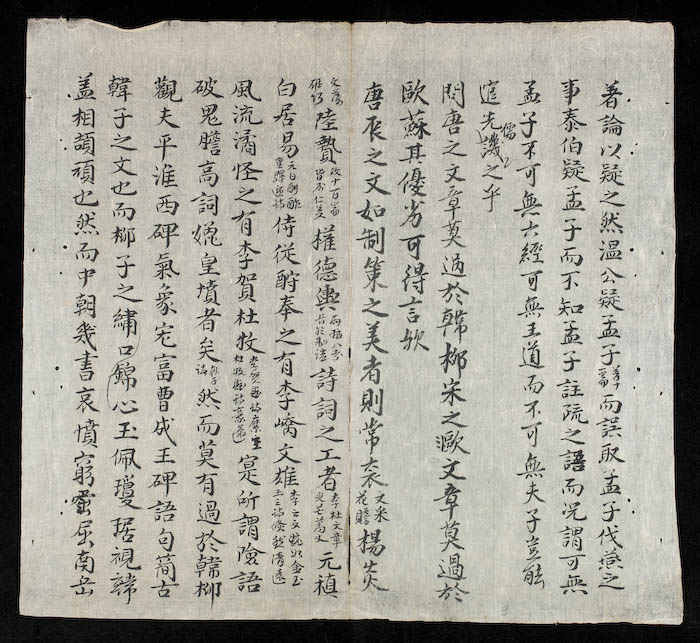 著論以疑之然溫公疑孟子而誤取孟子伐燕之
事泰伯疑孟子而不知孟子註疏之語而況謂可無
孟子不可無六經可無王道而不可無夫子豈能
逭先儒譏之乎
問唐之文章莫過於韓柳宋之歐文章莫過於
歐蘇其優劣可得言歟
唐辰之文如制策之美者則常衮文采花贍楊炎
文藻雄巧陸贄皆本仁義權德輿詩詞之工者李杜文章光芒萬丈元稹
白居易元白酬酢侍從酬奉之有李嶠文雄
風流譎怪之有李賀杜牧寔所謂險語
破鬼膽高詞媲皇墳者矣韓子詩然而莫有過於韓柳
觀夫平淮西碑氣象宏富曹成王碑語句簡古
韓子之文也而柳子之繡口錦心玉佩瓊琚視韓
盖相頡頏也然而中朝幾書哀憤窮屈南岳